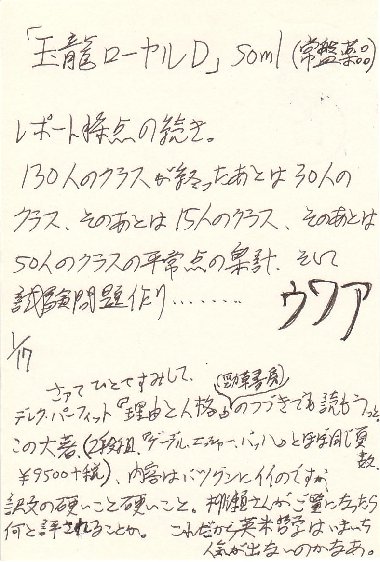 「玉龍ローヤルD」50ml(常盤薬品)
レポート採点の続き。
130人のクラスが終ったあとは30人の
クラス、そのあとは15人のクラス、そのあとは
50人のクラスの平常点の累計、そして
試験問題作り………
ウワア
1/17
さあてひとやすみして、
デレク・パーフィット『理由と人格』(勁草書房)のつづきでも読もうっと。
この大著(2段組、『ゲーデル、エッシャー、バッハ』とほぼ同じ頁数、
¥9500+税)、内容はバツグンにイイのですが
訳文の硬いこと硬いこと。柳瀬さんがご覧になったら
何と評されることか。これだから英米哲学はいまいち
人気が出ないのかなあ。